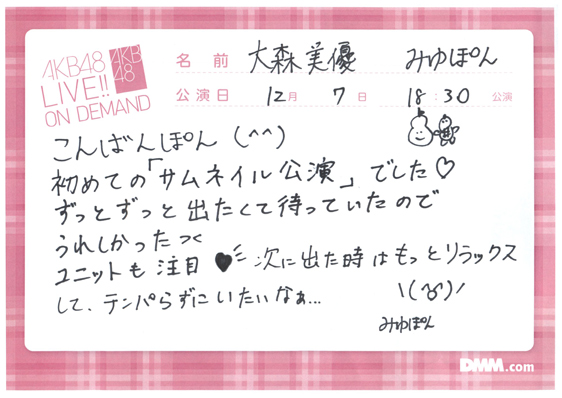 AKB48
LIVE!!
ON DEMAND
AKB
48
名前 大森美優 みゆぽん
公演日 12月 7日 18:30 公演
こんばんぽん (^^)
初めての「サムネイル公演」でした♡
ずっとずっと出たくて待っていたので
うれしかったっ
ユニットも注目 ♥ 次に出た時はもっとリラックス
して、テンパらずにいたいなぁ...
みゆぽん
DMM.com